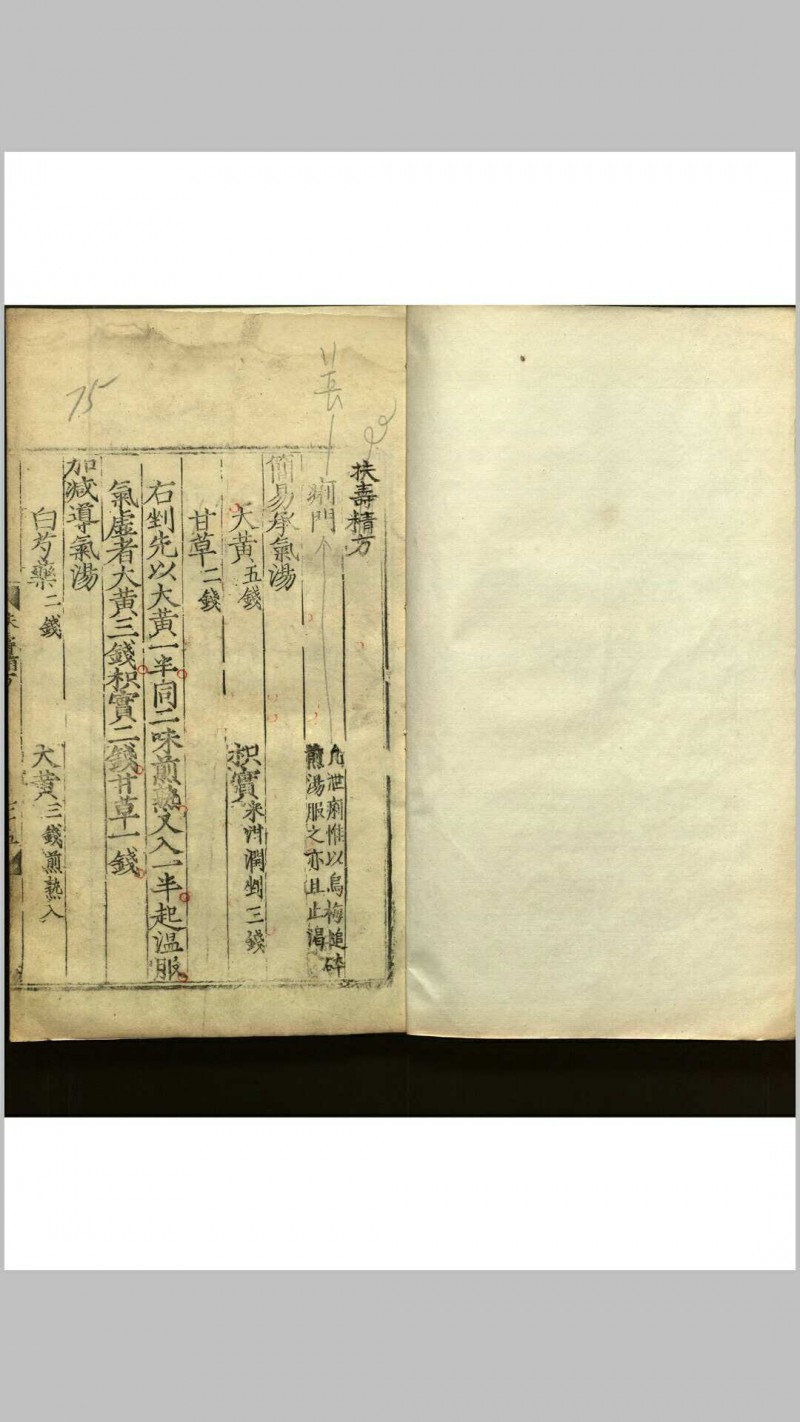 75
扶壽精方
痢門
凡泄痢惟以烏梅搥碎
煎湯服之亦且止渴
簡易承氣湯
大黃五錢
枳實米泔潤剉三錢
甘草二錢
右剉先以大黃一半同二味煎熟又入一半起溫服
氣虛者大黃三錢枳實二錢甘草一錢
加減導氣湯
白芍藥二錢
大黃三錢煎熟入